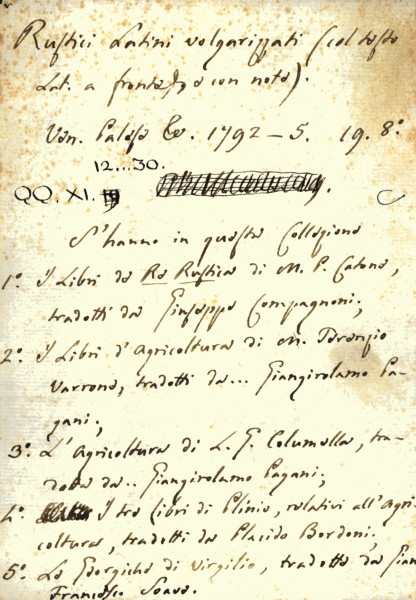 Rustici Latini volgarizzati (col testo
Lat. a fronte, e con note).
Ven. Palese &c. 1792–5. 19. 8.°
12...30.
QQ. XI.
S'hanno in questa Collezione
1.° I Libri de Re Rustica di M. P. Catone,
tradotti da Giuseppe Compagnoni;
2.° I Libri d'Agricoltura di M. Terenzio
Varrone, tradotti da... Giangirolamo Pa-
gani;
3.° L'Agricoltura di L. G. Columella, tra-
dotta da.. Giangirolamo Pagani;
4.° I tre libri di Plinio, relativi all'Agri-
coltura, tradotti da Placido Bordoni;
5.° Le Georgiche di Virgilio, tradotte da Gian
Francesco Soave.